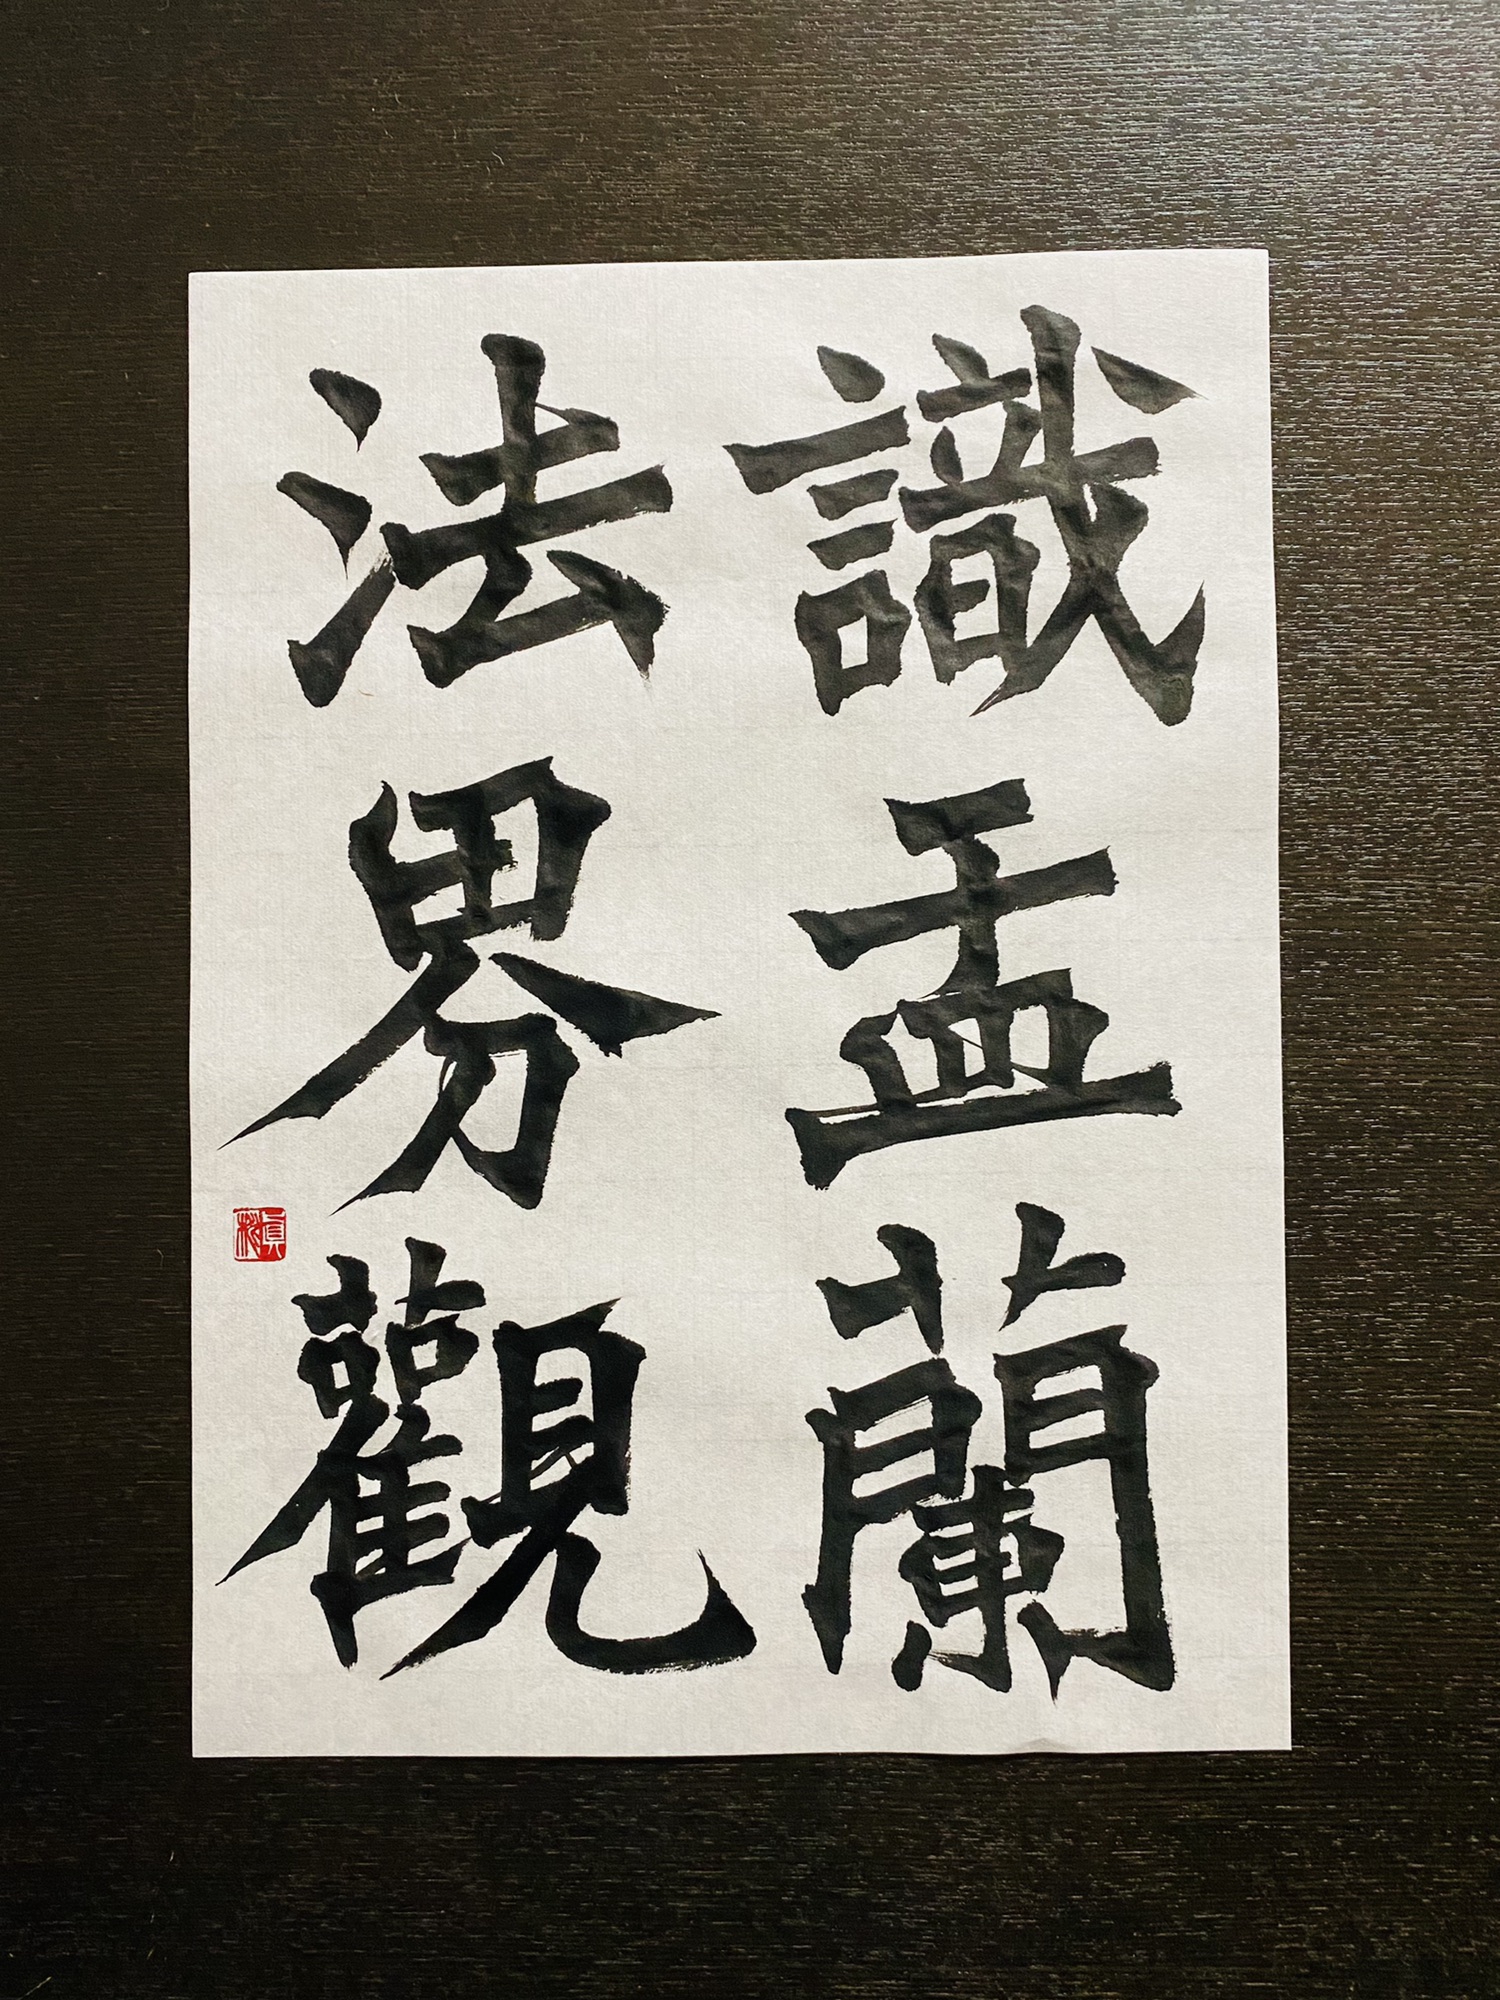 識盂蘭
法界觀